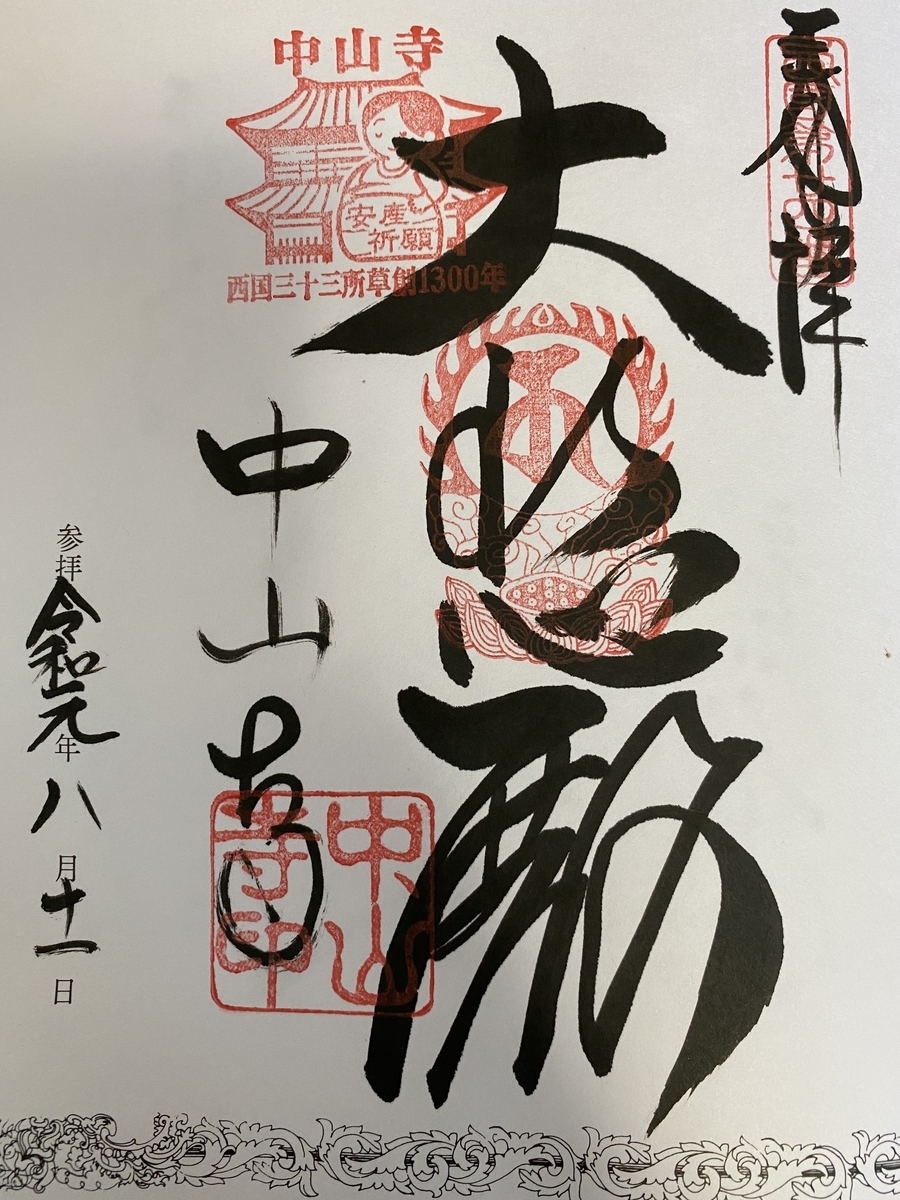 奉拝
西国第廿四番
大悲殿
中山寺
安産
祈願
西国三十三所草創1300年
中山寺
参拝 令和元年 八月 十一日